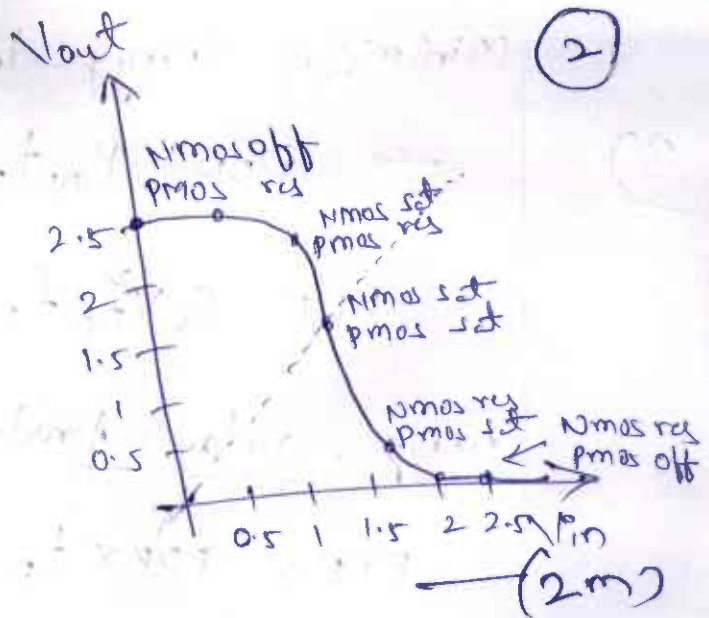 Vout
2
Nmos off
pmos res
Nmos sat
pmos res
2.5
Nmos sat
pmos sat
2
1.5
Nmos res
pmos sat
1
Nmos res
pmos off
0.5
0.5 1 1.5 2 2.5 Vin
(2m)